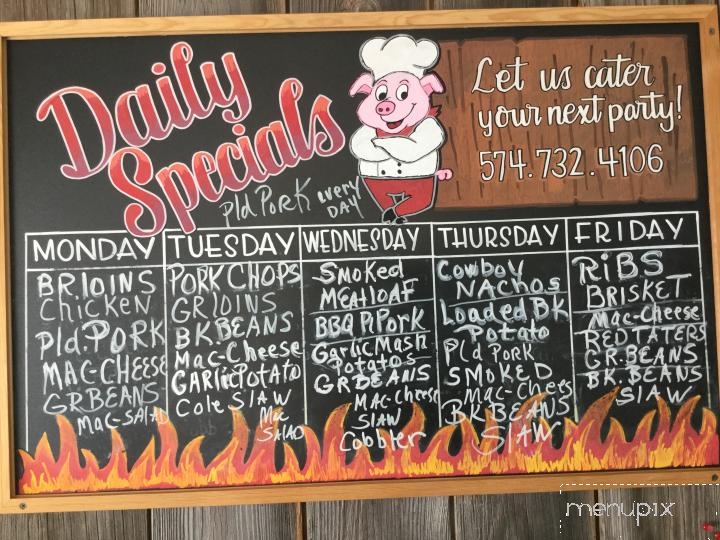 Daily
Specials
Pld PORK every
DAY
Let us cater
your next party!
574.732.4106
MONDAY
BR.IOINS
CHICKEN
Pld.PORK
MAC-CHEESE
GRBEANS
MAC-SALAD
TUESDAY
PORK CHOPS
GRIOINS
BK.BEANS
MAC-Cheese
GARlicPotATO
Cole SlAW
Mac
SALAD
WEDNESDAY
SMoKed
MEATLOAF
BBQ P.PORK
GarlicMash
Potatos
GRBEANS
MAC-Cheese
SlAW
Cobbler
THURSDAY
Cowboy
NAChos
LoAded BK
Potato
Pld PORK
SMOKED
MAC-Chees
BK.BEANS
SlAW
FRIDAY
RiBS
BRISKET
MAC-Cheese
RED TATERS
GR.BEANS
BK.BEANS
SlAW
menupix